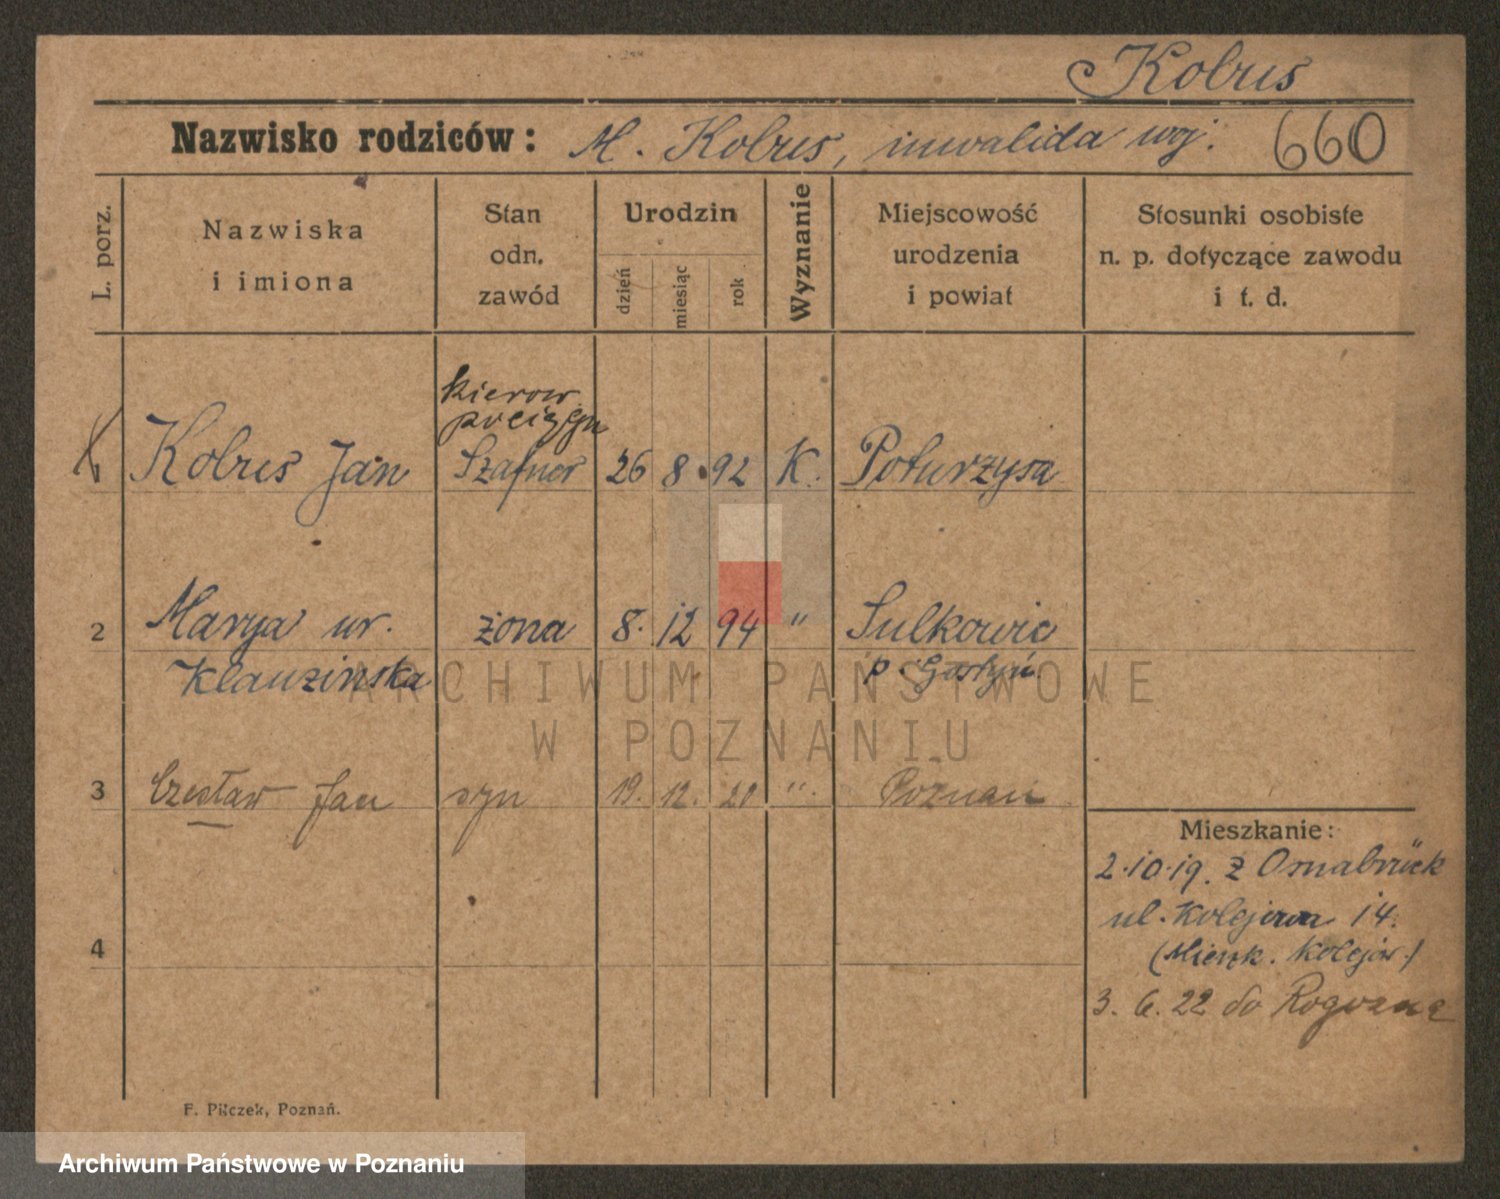 Kobus
Nazwisko rodziców: M. Kobus, inwalida woj. 660
L. porz.
Nazwiska
i imiona
Stan
odn.
zawód
Urodzin
dzień
miesiąc
rok
Wyznanie
Miejscowość
urodzenia
i powiat
Stosunki osobiste
n. p. dotyczące zawodu
i t. d.
kierow.
pociągu
Kobus Jan Szafner 26 8. 92 K. Poturzyca
2 Marya ur. żona 8. 12 94 " Sulkowic
Klauzińska p. Gostyń
3 Czesław Jan syn 19. 12. 21 " Poznań
4
Mieszkanie:
2.10.19. z Osnabrück
ul. Kolejowa 14.
(Mieszk. Kolejow.)
3. 6. 22 do Rogozna
F. Pilczek, Poznań.
ARCHIWUM PAŃSTWOWE
W POZNANIU
Archiwum Państwowe w Poznaniu